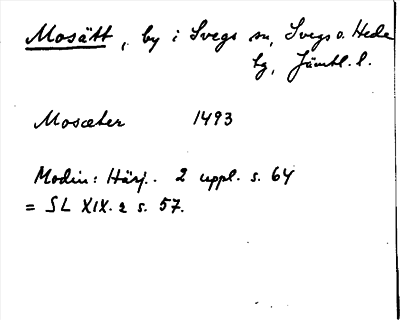 Mosätt, by i Svegs sn, Svegs o. Hede
tg, Jämtl. l.
Mosæter 1493
Modin: Härj. 2 uppl. s. 64
= SL XIX. 2 s. 57.